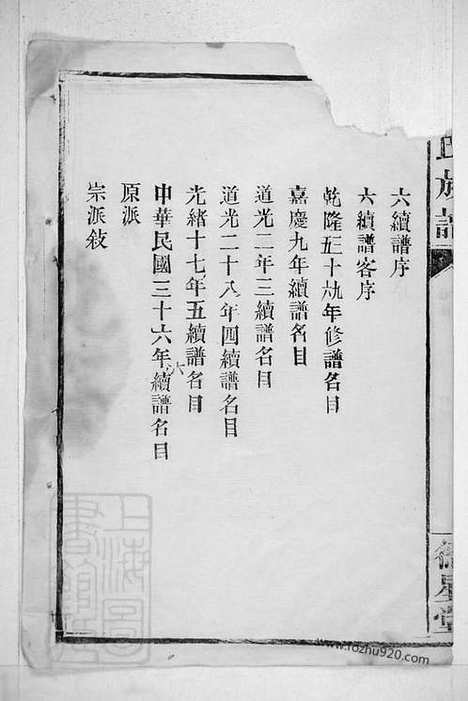 氏族譜
德星堂
六續譜序
六續譜客序
乾隆五十九年修譜名目
嘉慶九年續譜名目
道光二年三續譜名目
道光二十八年四續譜名目
光緒十七年五續譜名目
中華民國三十六年六續譜名目
原派
宗派敍
上海圖書館藏
www.fozhu920.com